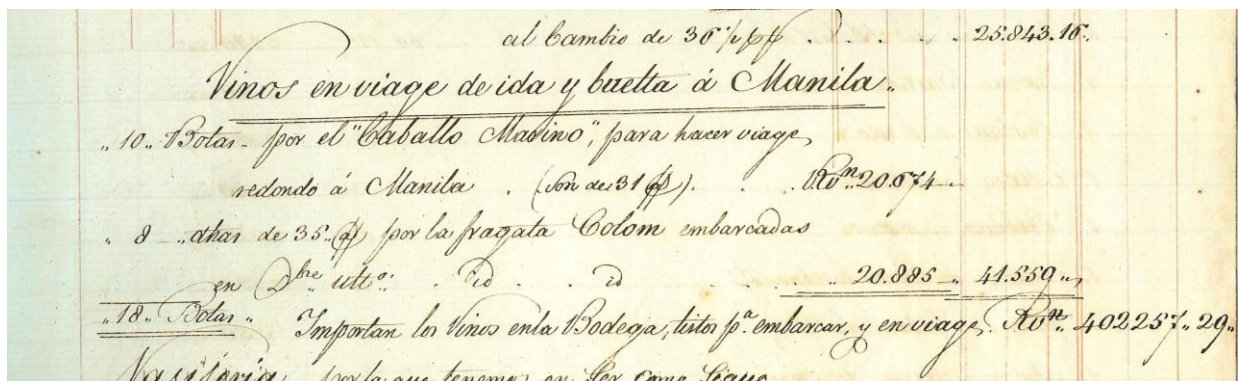 al Cambio de 36 25.843.16.
Vinos en viage de ida y buelta á Manila..
.. 10.. Botas - por el "Caballo Marino", para hacer viage
redondo á Manila . (son de 31 ). . . Rvn.. 20.674 ..
.. 8 .. dhas de 35.. por la fragata Colom embarcadas
en Dbre. ulto. . id . . id . . . .. 20.885 .. 41.559 ..
.. 18.. Botas .. Importan los Vinos en la Bodega, listos pa. embarcar, y en viage, Rvn. 402257.. 29..
Vasijeria, por la que tenemos en Ser como Sigue